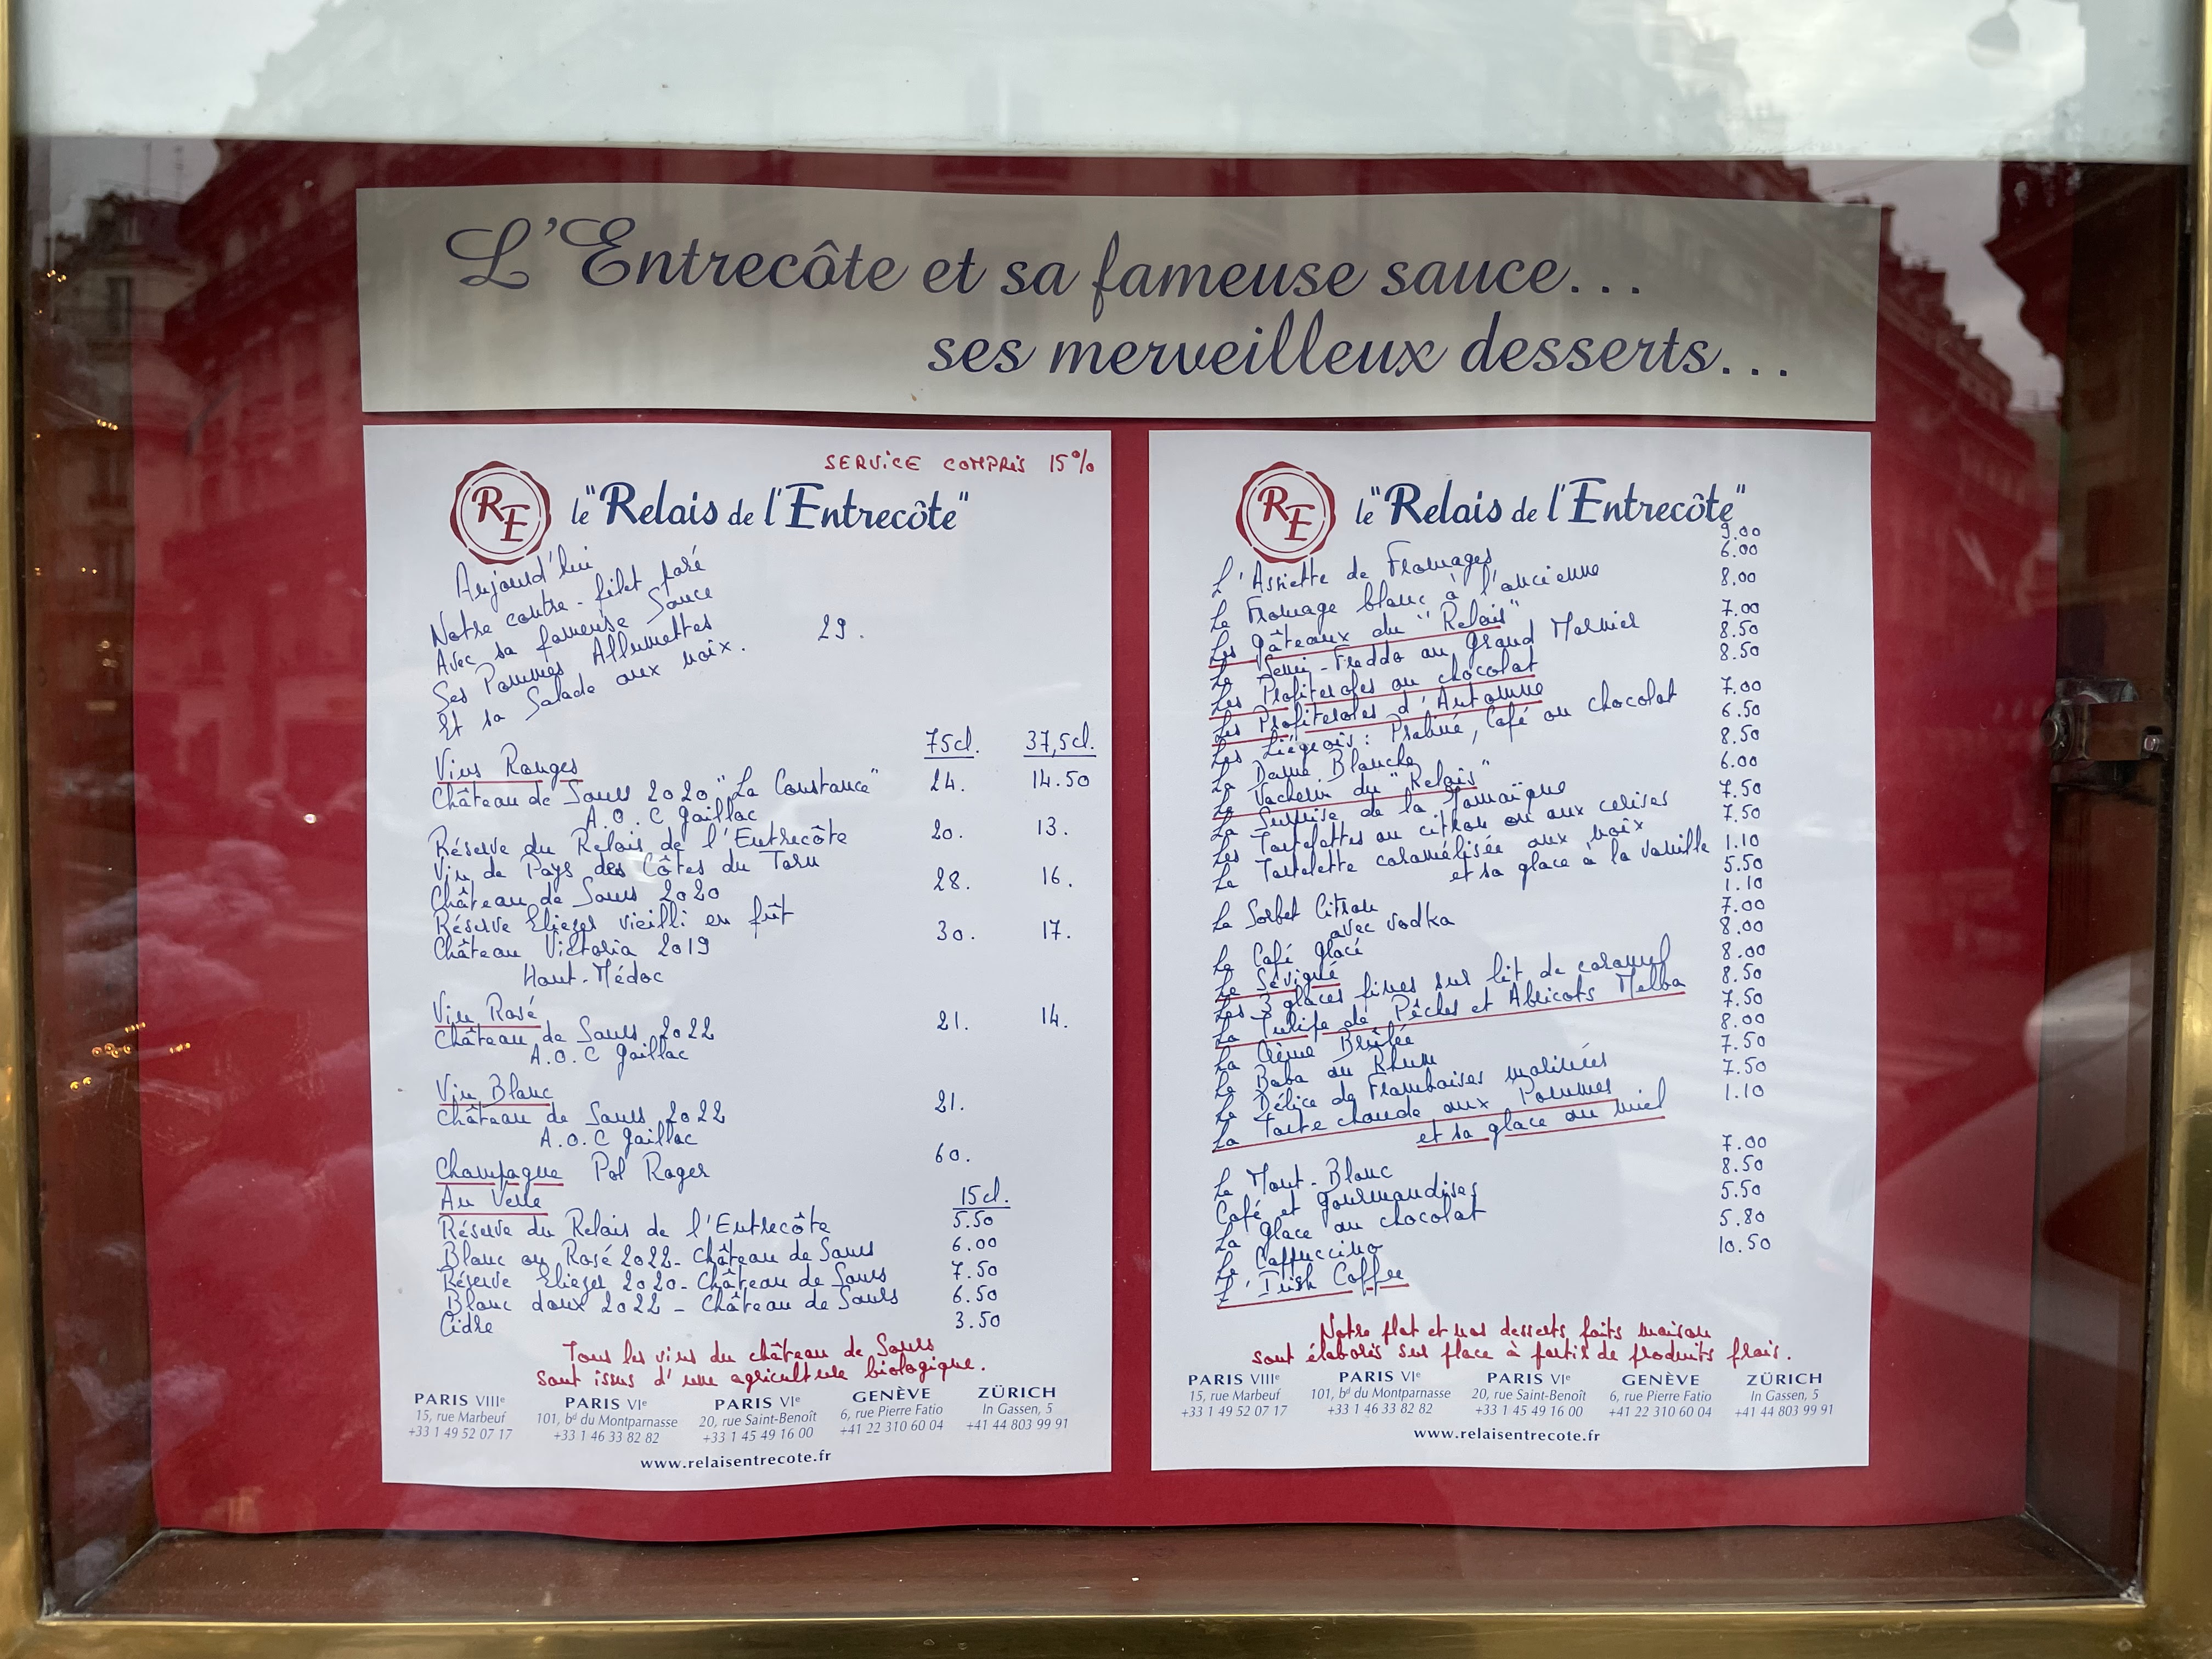 L'Entrecôte et sa fameuse sauce...
ses merveilleux desserts...
SERVICE COMPRIS 15%
RE
le "Relais de l'Entrecôte"
Aujourd'hui
Notre contre-filet paré
Avec sa fameuse Sauce
Ses Pommes Allumettes 29.
Et sa Salade aux noix.
75cl. 37,5cl.
Vins Rouges
Château de Saurs 2020 "La Constance" 24. 14.50
A.O.C Gaillac
Réserve du Relais de l'Entrecôte 20. 13.
Vin de Pays des Côtes du Tarn
Château de Saurs 2020 28. 16.
Réserve Eliezer vieilli en fût
Château Victoria 2019 30. 17.
Haut-Médoc
Vin Rosé
Château de Saurs 2022 21. 14.
A.O.C Gaillac
Vin Blanc
Château de Saurs 2022 21.
A.O.C Gaillac
Champagne Pol Roger 60.
Au Verre 15cl.
Réserve du Relais de l'Entrecôte 5.50
Blanc ou Rosé 2022 - Château de Saurs 6.00
Réserve Eliezer 2020 - Château de Saurs 7.50
Blanc doux 2022 - Château de Saurs 6.50
Cidre 3.50
Tous les vins du château de Saurs
sont issus d'une agriculture biologique.
PARIS VIIIe PARIS VIe PARIS VIe GENÈVE ZÜRICH
15, rue Marbeuf 101, bd du Montparnasse 20, rue Saint-Benoît 6, rue Pierre Fatio In Gassen, 5
+33 1 49 52 07 17 +33 1 46 33 82 82 +33 1 45 49 16 00 +41 22 310 60 04 +41 44 803 99 91
www.relaisentrecote.fr
RE
le "Relais de l'Entrecôte"
L'Assiette de Fromages 9.00
Le Fromage blanc à l'ancienne 6.00
Les Gâteaux du "Relais" 8.00
Le Semi-Freddo au Grand Marnier 7.00
Les Profiteroles au chocolat 8.50
Les Profiteroles d'Automne 8.50
Les Liégeois: Praliné, Café ou chocolat 7.00
La Dame Blanche 6.50
Le Vacherin du "Relais" 8.50
La Surprise de la Jamaïque 6.00
Les Tartelettes au citron ou aux cerises 7.50
La Tartelette caramélisée aux noix 7.50
et sa glace à la vanille 1.10
Le Sorbet Citron 5.50
avec vodka 1.10
Le Café glacé 7.00
Le Sévigné 8.00
Les 3 glaces fines sur lit de caramel 8.00
La Tulipe de Pêches et Abricots Melba 8.50
La Crème Brûlée 7.50
Le Baba au Rhum 8.00
Le Délice de Framboises marinées 7.50
La Tarte chaude aux Pommes 7.50
et sa glace au miel 1.10
Le Mont-Blanc 7.00
Café et gourmandises 8.50
La Glace au chocolat 5.50
Le Cappuccino 5.80
L'Irish Coffee 10.50
Notre plat et nos desserts faits maison
sont élaborés sur place à partir de produits frais.
PARIS VIIIe PARIS VIe PARIS VIe GENÈVE ZÜRICH
15, rue Marbeuf 101, bd du Montparnasse 20, rue Saint-Benoît 6, rue Pierre Fatio In Gassen, 5
+33 1 49 52 07 17 +33 1 46 33 82 82 +33 1 45 49 16 00 +41 22 310 60 04 +41 44 803 99 91
www.relaisentrecote.fr